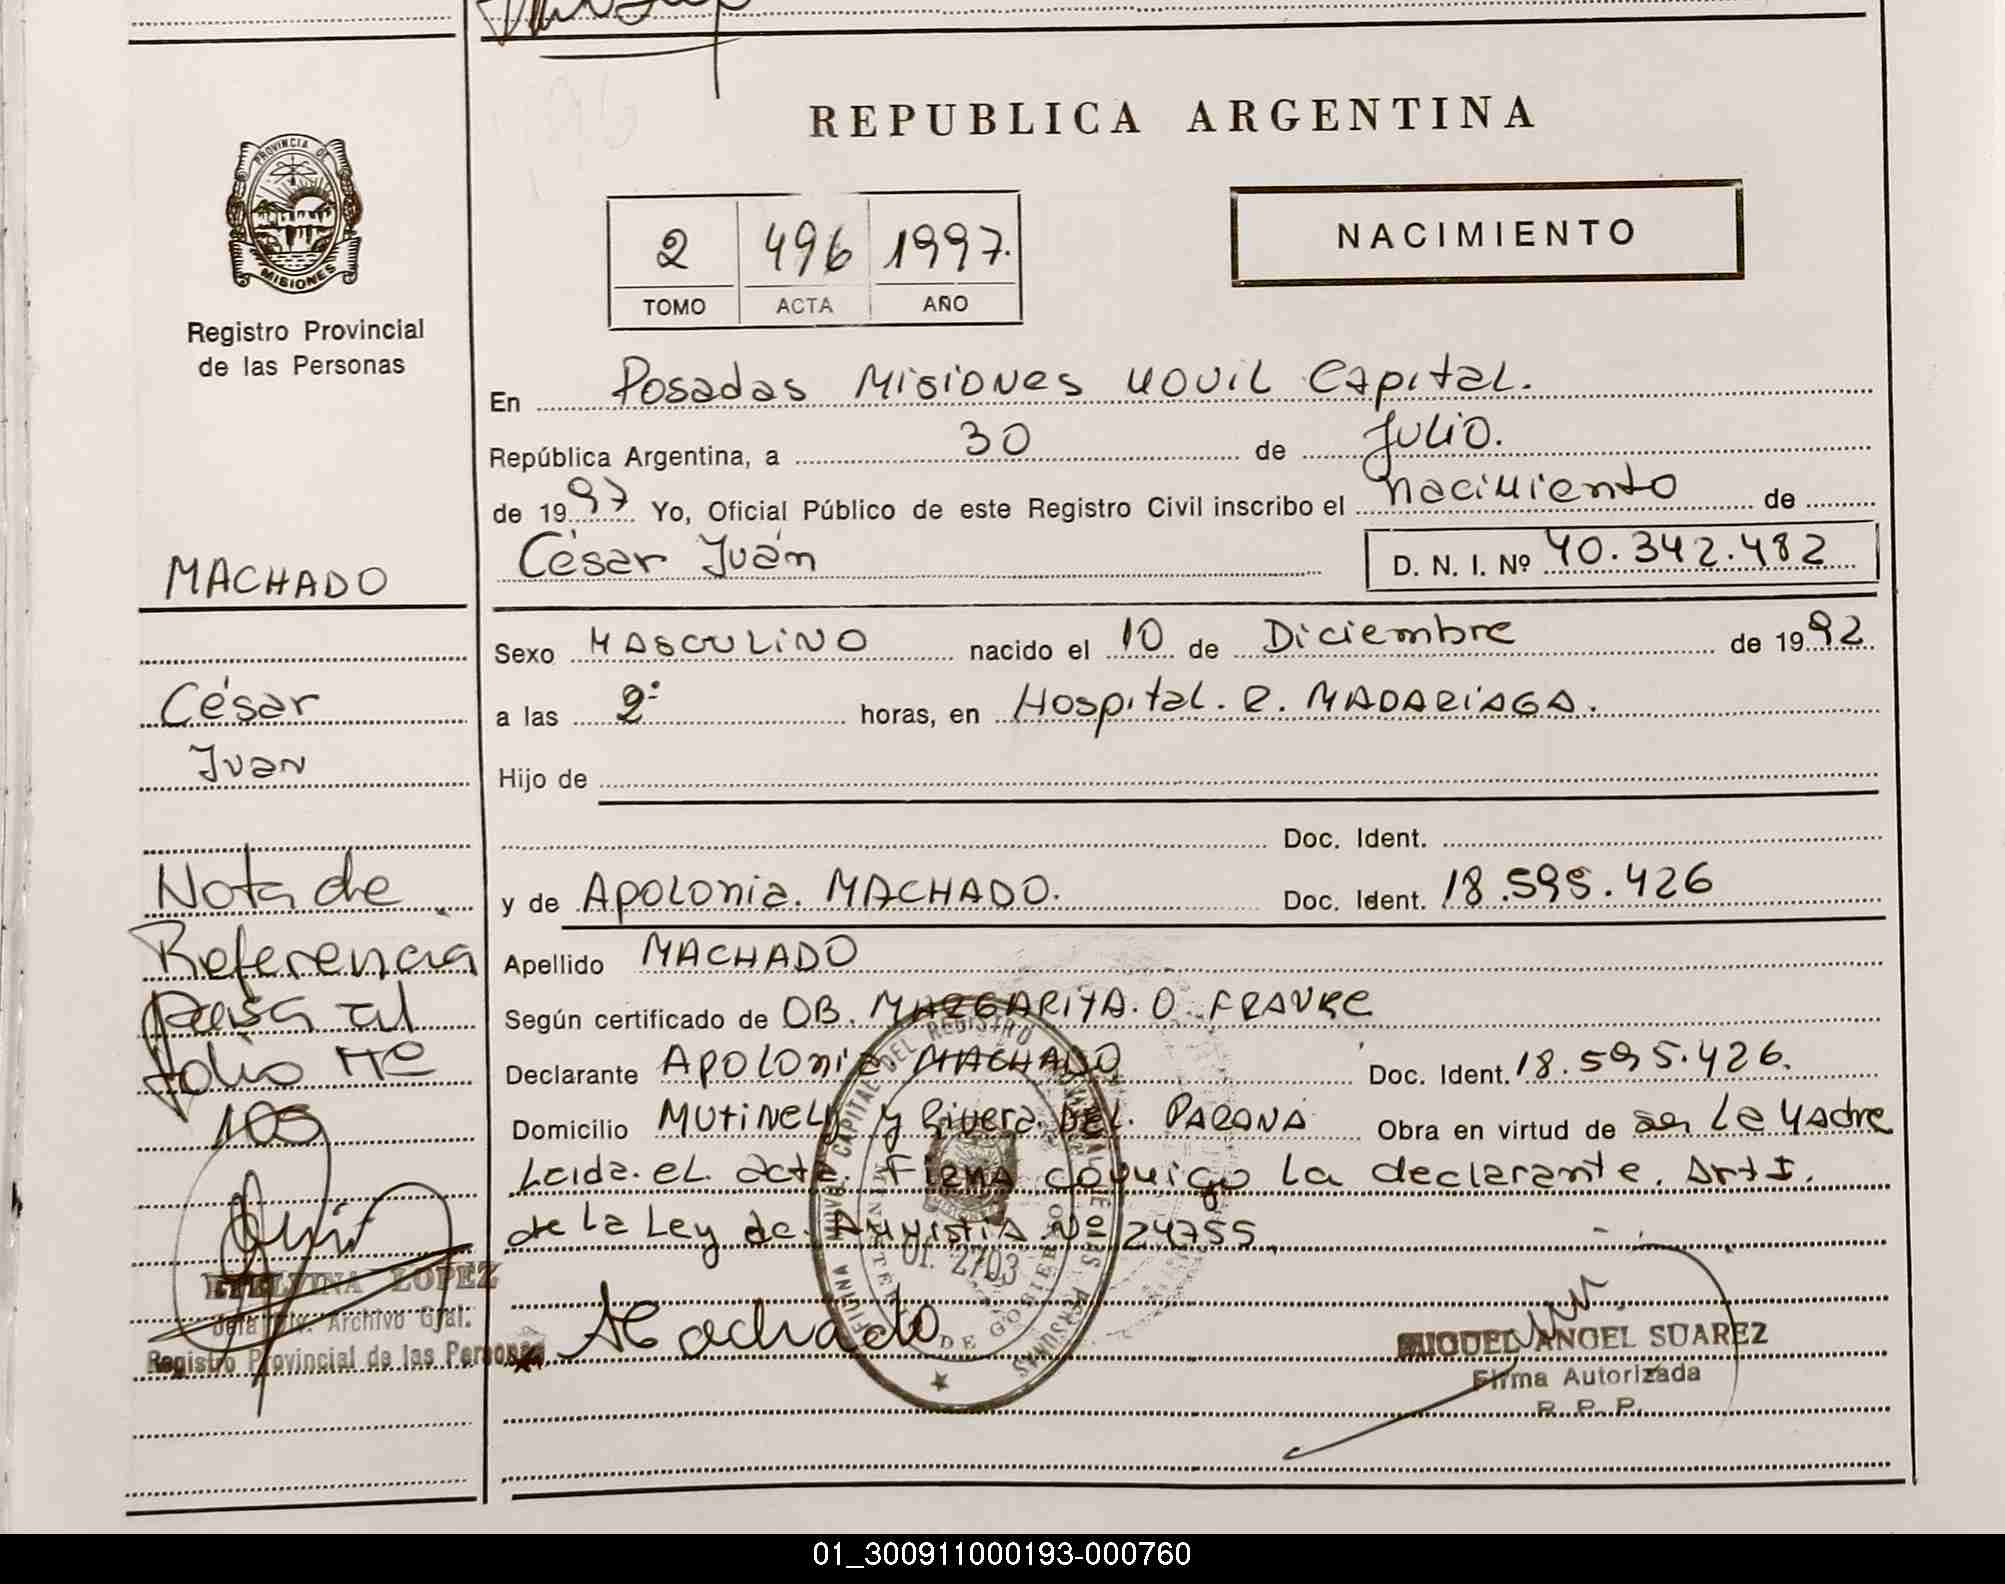 REPUBLICA ARGENTINA
PROVINCIA DE
MISIONES
Registro Provincial
de las Personas
2 496 1997.
TOMO ACTA AÑO
NACIMIENTO
En Posadas Misiones Movil Capital.
República Argentina, a 30 de Julio.
de 1997 Yo, Oficial Público de este Registro Civil inscribo el nacimiento de
César Juán D. N. I. Nº 40.342.482
MACHADO
César
Juan
Sexo MASCULINO nacido el 10 de Diciembre de 1992
a las 2: horas, en Hospital. R. MADARIAGA.
Hijo de
Doc. Ident.
y de Apolonia. MACHADO. Doc. Ident. 18.595.426
Apellido MACHADO
Según certificado de OB. MARGARITA. O.
Declarante Apolonia MACHADO Doc. Ident. 18.595.426.
Domicilio Mutinelly y Rivera DEL. PARANA Obra en virtud de ser la Madre
Leida. el. acta. Firma conmigo la declarante. Art 1.
de la Ley de. Amnistia Nº 24755
Nota de
Referencia
pasa al
folio Nº
103
ETELVINA LOPEZ
Archivo Gral.
Registro Provincial de las Personas
Machado
OFICINA MOVIL CAPITAL DEL REGISTRO PROVINCIAL DE LAS PERSONAS
MINISTERIO DE GOBIERNO
01. 2703
MIGUEL ANGEL SUAREZ
Firma Autorizada
R. P. P.
01_300911000193-000760